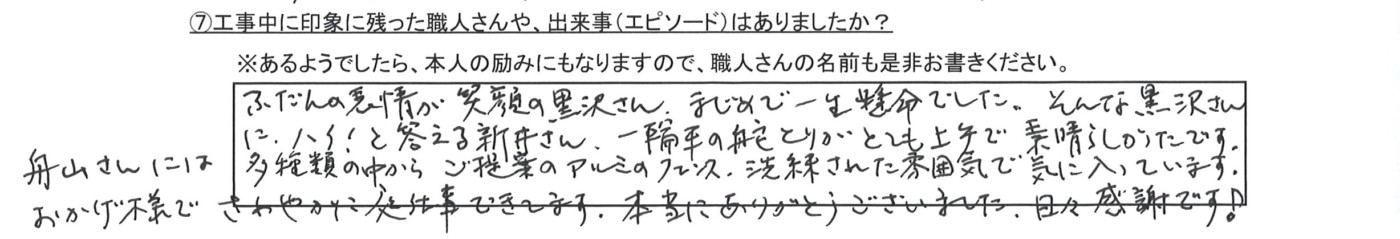 ⑦工事中に印象に残った職人さんや、出来事（エピソード）はありましたか？
※あるようでしたら、本人の励みにもなりますので、職人さんの名前も是非お書きください。
ふだんの表情が笑顔の黒沢さん、まじめで一生懸命でした。そんな黒沢さん
に、ハイ！と答える新井さん、一輪車の舵とりがとても上手で素晴らしかったです。
舟山さんには 多種類の中からご提案のアルミのフェンス、洗練された雰囲気で気に入っています。
おかげ様で さわやかに庭仕事できてます。本当にありがとうございました、日々感謝です！